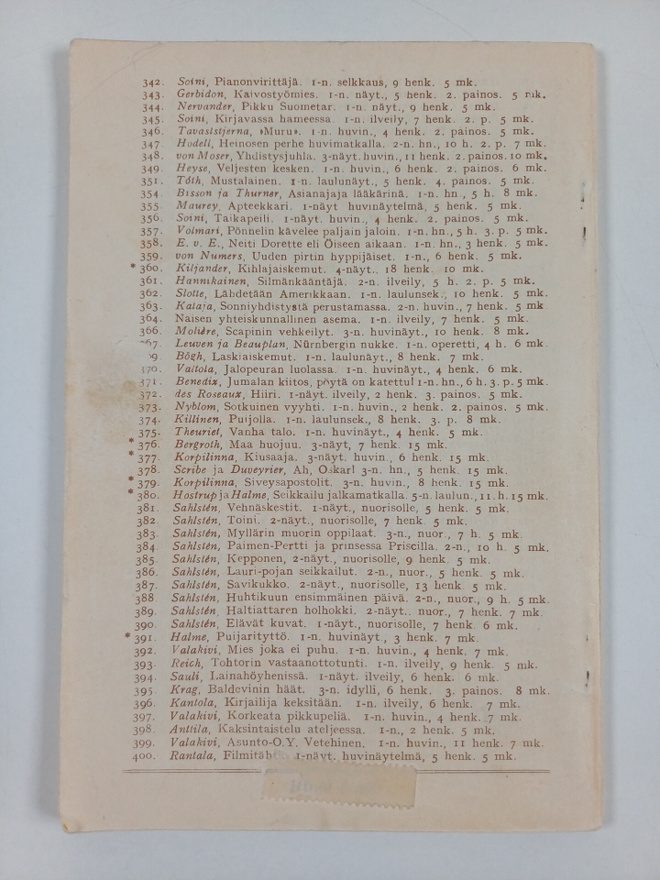 342. Soini, Pianonvirittäjä. 1-n. selkkaus, 9 henk. 5 mk.
343. Gerbidon, Kaivostyömies. 1-n. näyt., 5 henk. 2. painos. 5 mk.
344. Nervander, Pikku Suometar. 1-n. näyt., 9 henk. 5 mk.
345. Soini, Kirjavassa hameessa. 1-n. ilveily, 7 henk. 2. p. 5 mk.
346. Tavaststjerna, »Muru». 1-n. huvin., 4 henk. 2. painos. 5 mk.
347. Hodell, Heinosen perhe huvimatkalla. 2-n. hn., 10 h. 2. p. 7 mk.
348. von Moser, Yhdistysjuhla. 3-näyt. huvin., 11 henk. 2. painos. 10 mk.
349. Heyse, Veljesten kesken. 1-n. huvin., 6 henk. 2. painos. 6 mk.
351. Tóth, Mustalainen. 1-n. laulunäyt., 5 henk. 4. painos. 5 mk.
354. Bisson ja Thurner, Asianajaja lääkärinä. 1-n. hn., 5 h. 8 mk.
355. Maurey, Apteekkari. 1-näyt huvinäytelmä, 5 henk. 5 mk.
356. Soini, Taikapeili. 1-näyt. huvin., 4 henk. 2. painos. 5 mk.
357. Volmari, Pönnelin kävelee paljain jaloin. 1-n. hn., 5 h. 3. p. 5 mk.
358. E. v. E., Neiti Dorette eli Öiseen aikaan. 1-n. hn., 3 henk. 5 mk.
359. von Numers, Uuden pirtin hyppijäiset. 1-n., 6 henk. 5 mk.
* 360. Kiljander, Kihlajaiskemut. 4-näyt. 18 henk. 10 mk.
361. Hannikainen, Silmänkääntäjä. 2-n. ilveily, 5 h. 2. p. 5 mk.
362. Slotte, Lähdetään Amerikkaan. 1-n. laulunsek., 10 henk. 5 mk.
363. Kataja, Sonniyhdistystä perustamassa. 2-n. huvin., 7 henk. 5 mk
364. Naisen yhteiskunnallinen asema. 1-n. ilveily, 7 henk. 5 mk.
366. Molière, Scapinin vehkeilyt. 3-n. huvinäyt., 10 henk. 8 mk.
67. Leuven ja Beauplan, Nürnbergin nukke. 1-n. operetti, 4 h. 6 mk.
9. Bögh, Laskiaiskemut. 1-n. laulunäyt., 8 henk. 7 mk.
370. Valtola, Jalopeuran luolassa. 1-n. huvinäyt., 4 henk. 6 mk.
371. Benedix, Jumalan kiitos, pöytä on katettu! 1-n. hn., 6 h. 3. p. 5 mk.
372. des Roseaux, Hiiri. 1-näyt. ilveily, 2 henk. 3. painos. 5 mk.
373. Nyblom, Sotkuinen vyyhti. 1-n. huvin., 2 henk. 2. painos. 5 mk.
374. Killinen, Puijolla. 1-n. laulunsek., 8 henk. 3. p. 8 mk.
375. Theuriet, Vanha talo. 1-n. huvinäyt., 4 henk. 5 mk.
* 376. Bergroth, Maa huojuu. 3-näyt, 7 henk. 15 mk.
* 377. Korpilinna, Kiusaaja. 3-näyt. huvin., 6 henk. 15 mk.
378. Scribe ja Duveyrier, Ah, Oskar! 3-n. hn., 5 henk. 15 mk.
* 379. Korpilinna, Siveysapostolit. 3-n. huvin., 8 henk. 15 mk.
* 380. Hostrup ja Halme, Seikkailu jalkamatkalla. 5-n. laulun., 11. h. 15 mk.
381. Sahlstén, Vehnäskestit. 1-näyt., nuorisolle, 5 henk. 5 mk.
382. Sahlstén, Toini. 2-näyt., nuorisolle, 7 henk. 5 mk.
383. Sahlstén, Myllärin muorin oppilaat. 3-n., nuor., 7 h. 5 mk.
384. Sahlstén, Paimen-Pertti ja prinsessa Priscilla. 2-n., 10 h. 5 mk.
385. Sahlstén, Kepponen, 2-näyt., nuorisolle, 9 henk. 5 mk.
386. Sahlstén, Lauri-pojan seikkailut. 2-n., nuor., 5 henk. 5 mk.
387. Sahlstén, Savikukko. 2-näyt., nuorisolle, 13 henk. 5 mk.
388 Sahlstén, Huhtikuun ensimmäinen päivä. 2-n., nuor., 9 h. 5 mk.
389. Sahlstén, Haltiattaren holhokki. 2-näyt.. nuor., 7 henk. 7 mk.
390. Sahlstén, Elävät kuvat. 1-näyt., nuorisolle, 7 henk. 6 mk.
* 391. Halme, Puijarityttö. 1-n. huvinäyt., 3 henk. 7 mk.
392. Valakivi, Mies joka ei puhu. 1-n. huvin., 4 henk. 7 mk.
393. Reich, Tohtorin vastaanottotunti. 1-n. ilveily, 9 henk. 5 mk.
394. Sauli, Lainahöyhenissä. 1-näyt. ilveily, 6 henk. 6 mk.
395. Krag, Baldevinin häät. 3-n. idylli, 6 henk. 3. painos. 8 mk.
396. Kantola, Kirjailija keksitään. 1-n. ilveily, 6 henk. 7 mk.
397. Valakivi, Korkeata pikkupeliä. 1-n. huvin., 4 henk. 7 mk.
398. Anttila, Kaksintaistelu ateljeessa. 1-n., 2 henk. 5 mk.
399. Valakivi, Asunto-O.Y. Vetehinen. 1-n. huvin., 11 henk. 7 mk.
400. Rantala, 1-näyt. huvinäytelmä, 5 henk. 5 mk.